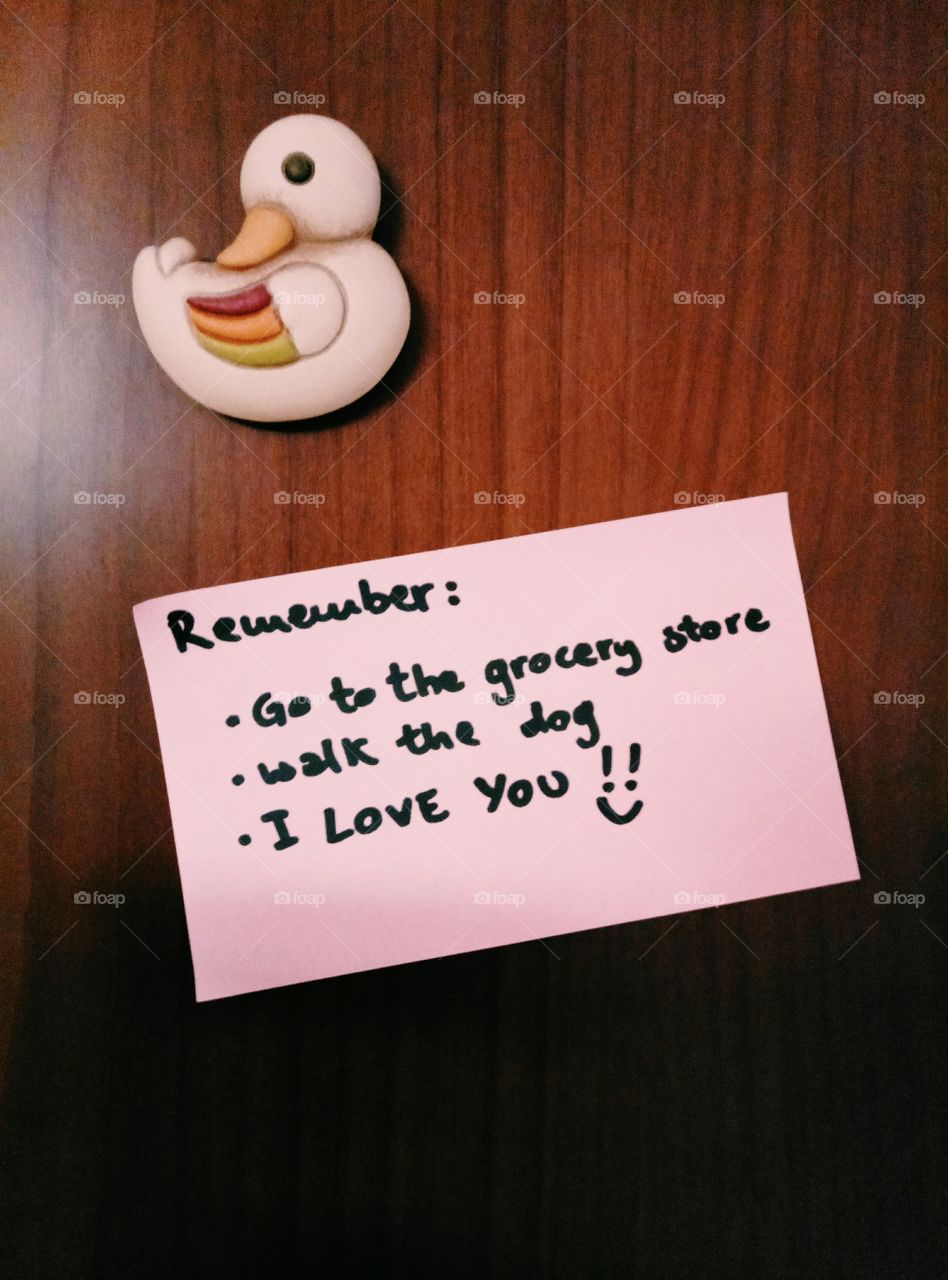 Remember:
• Go to the grocery store
• walk the dog
• I LOVE YOU !!
foap foap foap foap foap
foap foap foap foap
foap foap foap foap foap
foap foap foap foap foap
foap foap foap foap foap